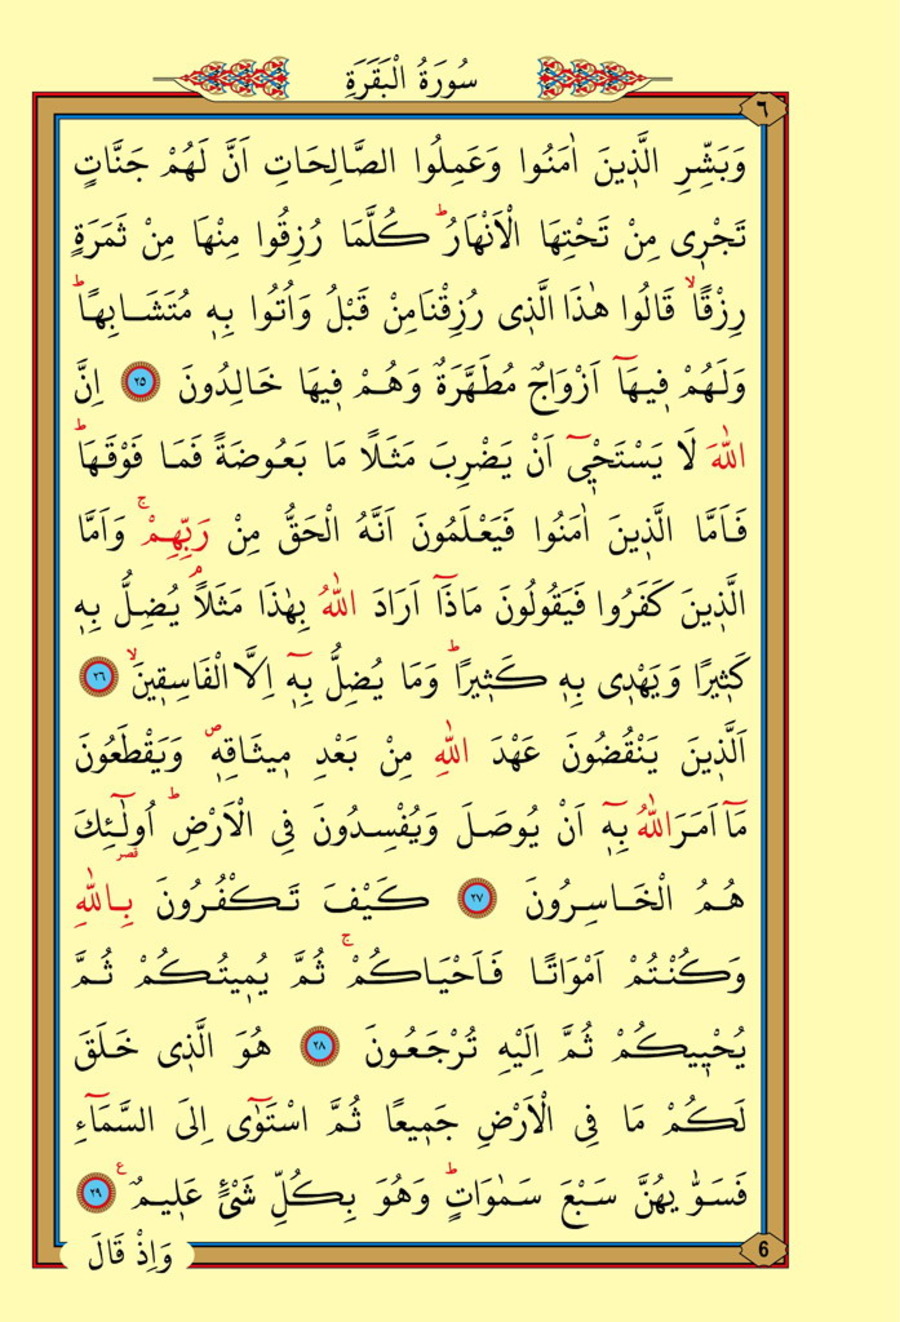 سُورَةُ الْبَقَرَةِ
٦
وَبَشِّرِ الَّذٖينَ اٰمَنُوا وَعَمِلُوا الصَّالِحَاتِ اَنَّ لَهُمْ جَنَّاتٍ
تَجْرٖى مِنْ تَحْتِهَا الْاَنْهَارُؕ كُلَّمَا رُزِقُوا مِنْهَا مِنْ ثَمَرَةٍ
رِزْقًاۙ قَالُوا هٰذَا الَّذٖى رُزِقْنَامِنْ قَبْلُ وَاُتُوا بِهٖ مُتَشَابِهًاؕ
وَلَهُمْ فٖيهَٓا اَزْوَاجٌ مُطَهَّرَةٌ وَهُمْ فٖيهَا خَالِدُونَ ٢٥ اِنَّ
اللّٰهَ لَا يَسْتَحْيٖٓ اَنْ يَضْرِبَ مَثَلًا مَا بَعُوضَةً فَمَا فَوْقَهَاؕ
فَاَمَّا الَّذٖينَ اٰمَنُوا فَيَعْلَمُونَ اَنَّهُ الْحَقُّ مِنْ رَبِّهِمْۚ وَاَمَّا
الَّذٖينَ كَفَرُوا فَيَقُولُونَ مَاذَٓا اَرَادَ اللّٰهُ بِهٰذَا مَثَلًاۢ يُضِلُّ بِهٖ
كَثٖيرًا وَيَهْدٖى بِهٖ كَثٖيرًاؕ وَمَا يُضِلُّ بِهٖٓ اِلَّا الْفَاسِقٖينَۙ ٢٦
اَلَّذٖينَ يَنْقُضُونَ عَهْدَ اللّٰهِ مِنْ بَعْدِ مٖيثَاقِهٖࣕ وَيَقْطَعُونَ
مَٓا اَمَرَ اللّٰهُ بِهٖٓ اَنْ يُوصَلَ وَيُفْسِدُونَ فِى الْاَرْضِؕ اُولٰٓئِكَ
قصر
هُمُ الْخَاسِرُونَ ٢٧ كَيْفَ تَكْفُرُونَ بِاللّٰهِ
وَكُنْتُمْ اَمْوَاتًا فَاَحْيَاكُمْۚ ثُمَّ يُمٖيتُكُمْ ثُمَّ
يُحْيٖيكُمْ ثُمَّ اِلَيْهِ تُرْجَعُونَ ٢٨ هُوَ الَّذٖى خَلَقَ
لَكُمْ مَا فِى الْاَرْضِ جَمٖيعًا ثُمَّ اسْتَوٰٓى اِلَى السَّمَٓاءِ
فَسَوّٰيهُنَّ سَبْعَ سَمٰوَاتٍؕ وَهُوَ بِكُلِّ شَىْءٍ عَلٖيمٌ ع ٢٩
وَاِذْ قَالَ
6